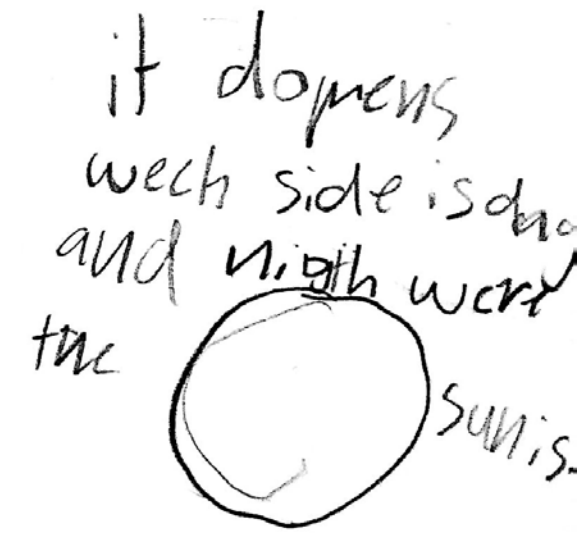 it dopens
wech side is day
and nigth were
the sun is.